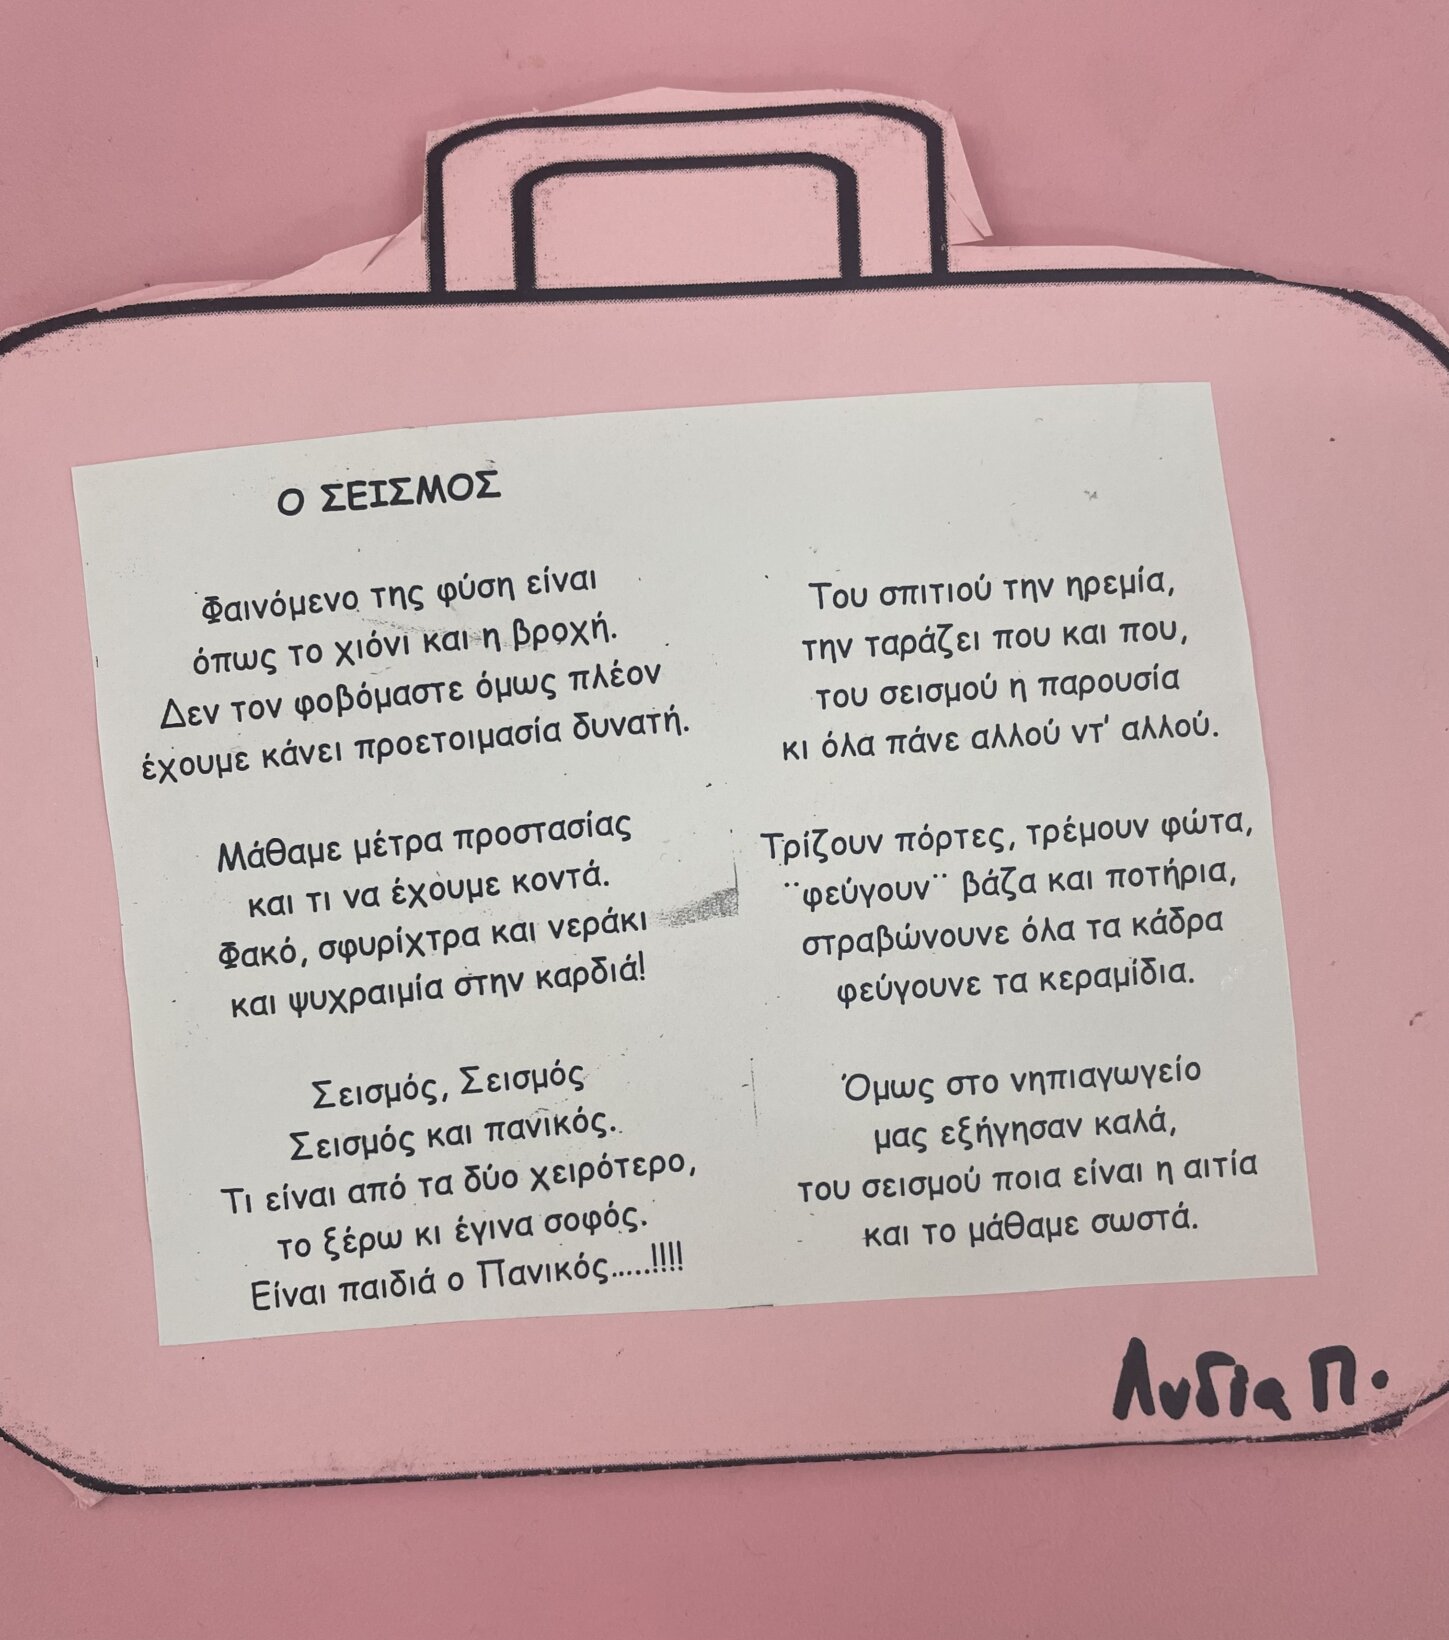 Ο ΣΕΙΣΜΟΣ
Φαινόμενο της φύση είναι
όπως το χιόνι και η βροχή.
Δεν τον φοβόμαστε όμως πλέον
έχουμε κάνει προετοιμασία δυνατή.
Μάθαμε μέτρα προστασίας
και τι να έχουμε κοντά.
Φακό, σφυρίχτρα και νεράκι
και ψυχραιμία στην καρδιά!
Σεισμός, Σεισμός
Σεισμός και πανικός.
Τι είναι από τα δύο χειρότερο,
το ξέρω κι έγινα σοφός.
Είναι παιδιά ο Πανικός.....!!!!
Του σπιτιού την ηρεμία,
την ταράζει που και που,
του σεισμού η παρουσία
κι όλα πάνε αλλού ντ' αλλού.
Τρίζουν πόρτες, τρέμουν φώτα,
¨φεύγουν¨ βάζα και ποτήρια,
στραβώνουνε όλα τα κάδρα
φεύγουνε τα κεραμίδια.
Όμως στο νηπιαγωγείο
μας εξήγησαν καλά,
του σεισμού ποια είναι η αιτία
και το μάθαμε σωστά.
Λυδία Π.